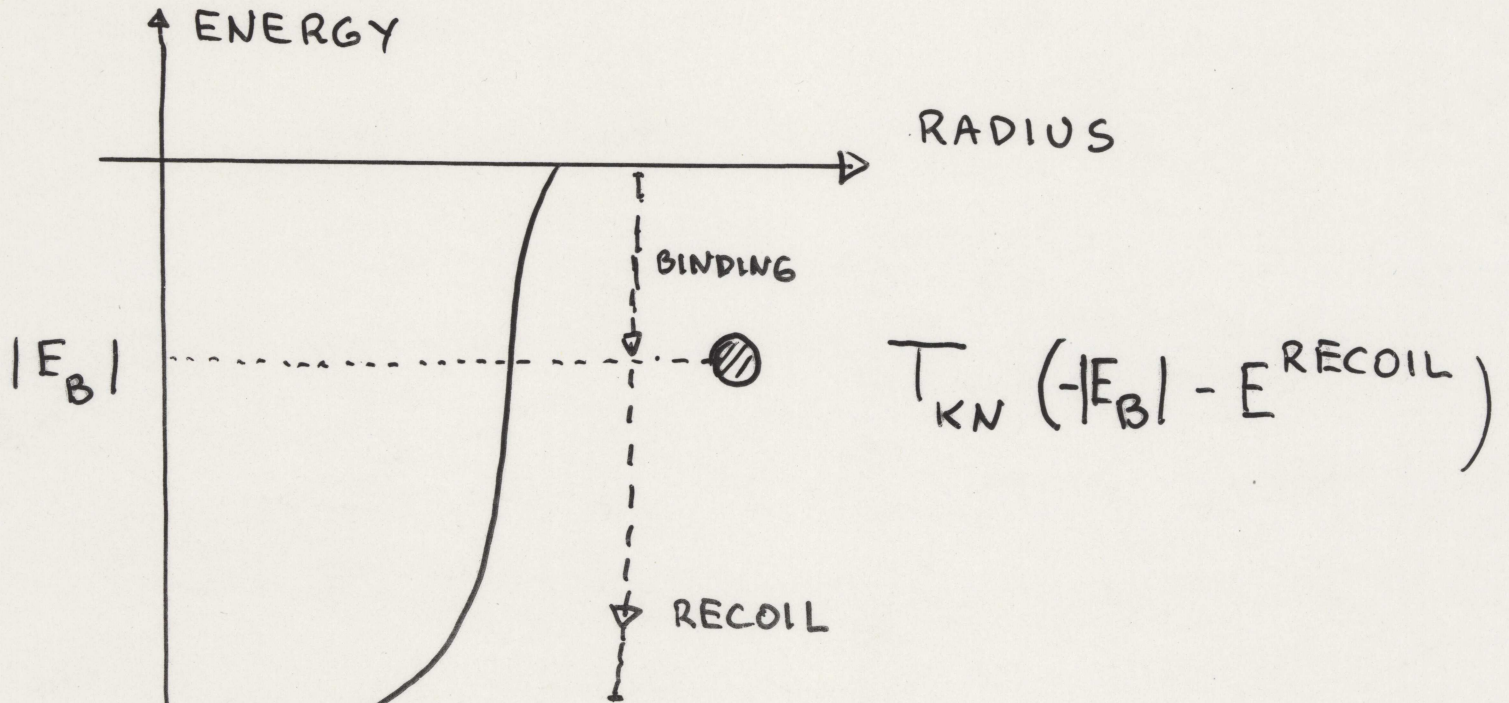 ENERGY
RADIUS
BINDING
|E_B|
T_KN (-|E_B| - E^RECOIL)
RECOIL